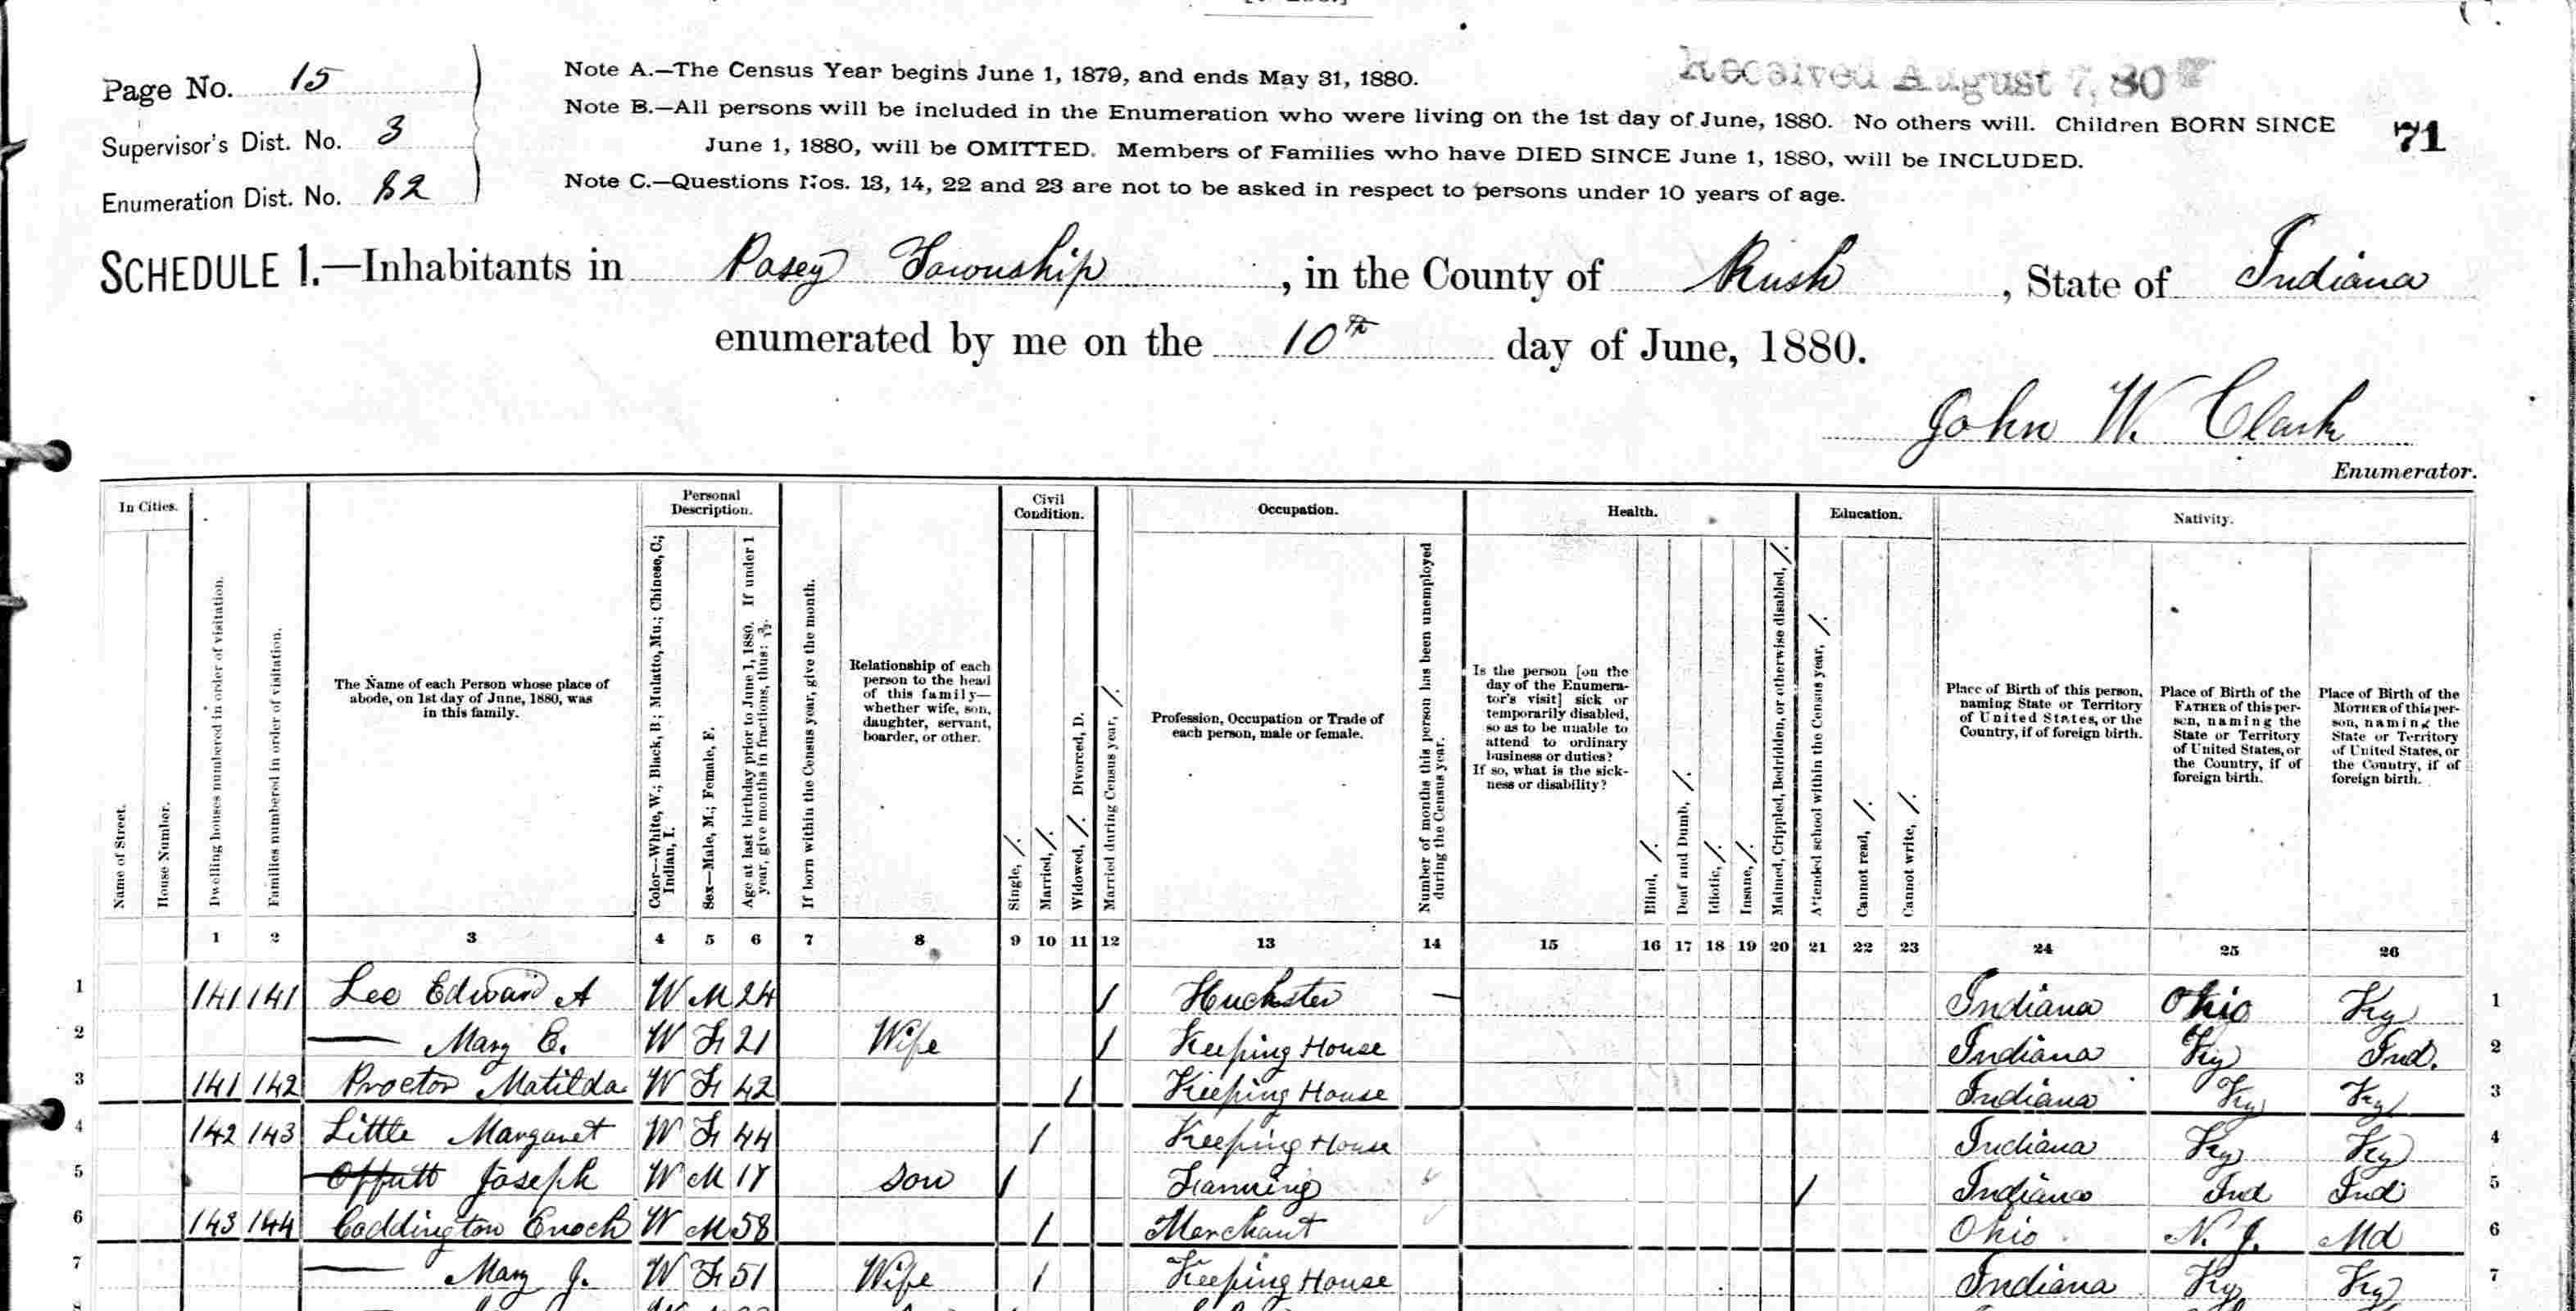 Page No. 15
Supervisor's Dist. No. 3
Enumeration Dist. No. 82
Note A.—The Census Year begins June 1, 1879, and ends May 31, 1880.
Note B.—All persons will be included in the Enumeration who were living on the 1st day of June, 1880. No others will. Children BORN SINCE
June 1, 1880, will be OMITTED. Members of Families who have DIED SINCE June 1, 1880, will be INCLUDED.
Note C.—Questions Nos. 13, 14, 22 and 23 are not to be asked in respect to persons under 10 years of age.
Received August 7, 80
71
SCHEDULE 1.—Inhabitants in Posey Township, in the County of Rush, State of Indiana
enumerated by me on the 10th day of June, 1880.
John W. Clark
Enumerator.
In Cities.
Personal Description.
Civil Condition.
Occupation.
Health.
Education.
Nativity.
Name of Street.
House Number.
Dwelling houses numbered in order of visitation.
Families numbered in order of visitation.
The Name of each Person whose place of
abode, on 1st day of June, 1880, was
in this family.
Color—White, W.; Black, B.; Mulatto, Mu.; Chinese, C.;
Indian, I.
Sex—Male, M.; Female, F.
Age at last birthday prior to June 1, 1880. If under 1
year, give months in fractions, thus: 3/12.
If born within the Census year, give the month.
Relationship of each
person to the head
of this family—
whether wife, son,
daughter, servant,
boarder, or other.
Single, /.
Married, /.
Widowed, /. Divorced, D.
Married during Census year, /.
Profession, Occupation or Trade of
each person, male or female.
Number of months this person has been unemployed
during the Census year.
Is the person [on the
day of the Enumera-
tor's visit] sick or
temporarily disabled,
so as to be unable to
attend to ordinary
business or duties?
If so, what is the sick-
ness or disability?
Blind, /.
Deaf and Dumb, /.
Idiotic, /.
Insane, /.
Maimed, Crippled, Bedridden, or otherwise disabled, /.
Attended school within the Census year, /.
Cannot read, /.
Cannot write, /.
Place of Birth of this person,
naming State or Territory
of United States, or the
Country, if of foreign birth.
Place of Birth of the
FATHER of this per-
son, naming the
State or Territory
of United States, or
the Country, if of
foreign birth.
Place of Birth of the
MOTHER of this per-
son, naming the
State or Territory
of United States, or
the Country, if of
foreign birth.
1 2 3 4 5 6 7 8 9 10 11 12 13 14 15 16 17 18 19 20 21 22 23 24 25 26
1 141 141 Lee Edward A W M 24 / Huckster — Indiana Ohio Ky 1
2 — Mary E. W F 21 Wife / Keeping House Indiana Ky Ind. 2
3 141 142 Proctor Matilda W F 42 / Keeping House Indiana Ky Ky 3
4 142 143 Little Margaret W F 44 / Keeping House Indiana Ky Ky 4
5 Offutt Joseph W M 17 Son / Farming / Indiana Ind Ind 5
6 143 144 Coddington Enoch W M 58 / Merchant Ohio N. J. Md 6
7 — Mary J. W F 51 Wife / Keeping House Indiana Ky Ky 7